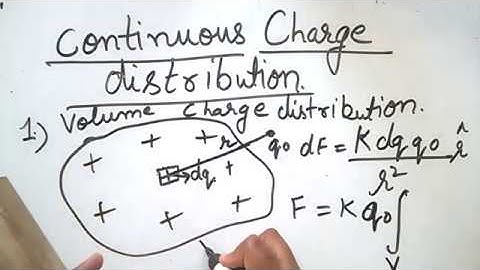 Continuous Charge
distribution.
1.) Volume charge distribution.
+ + +
r q₀ dF = K dq q₀ r̂
r²
+ dq +
+ + +
F = K q₀ ∫
V